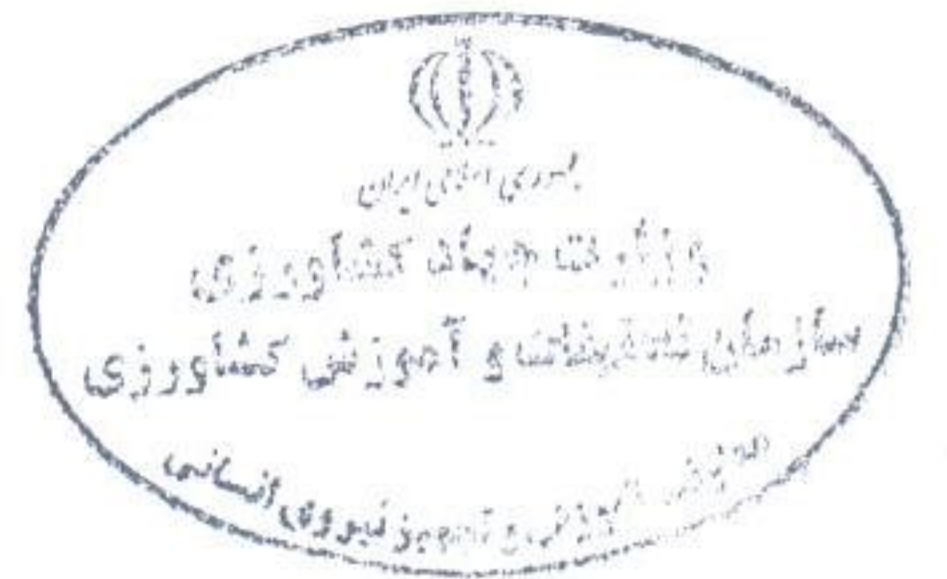 جمهوری اسلامی ایران
وزارت جهاد کشاورزی
سازمان تحقیقات و آموزش کشاورزی
آموزش و تجهیز نیروی انسانی